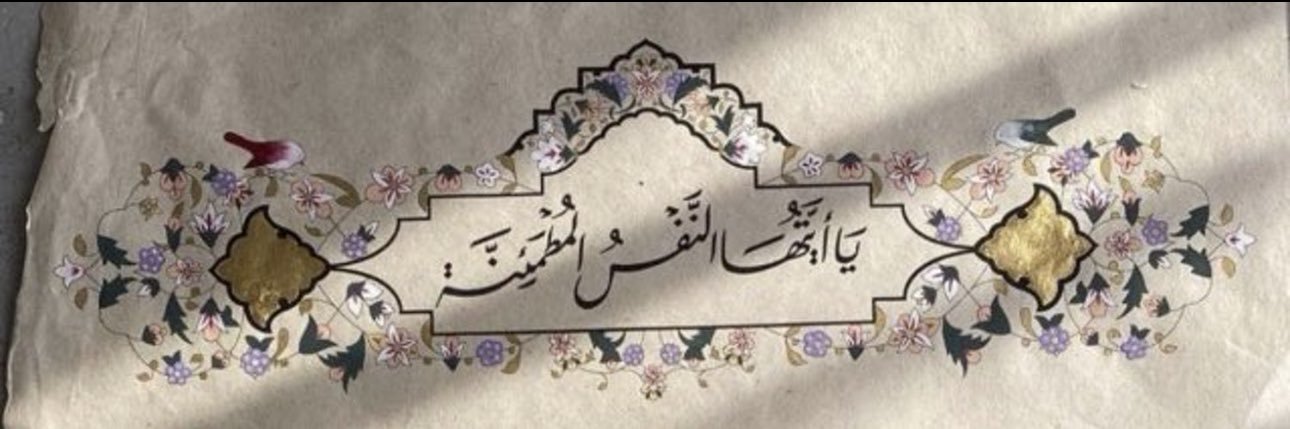 يَا أَيَّتُهَا النَّفْسُ المُطْمَئِنَّة